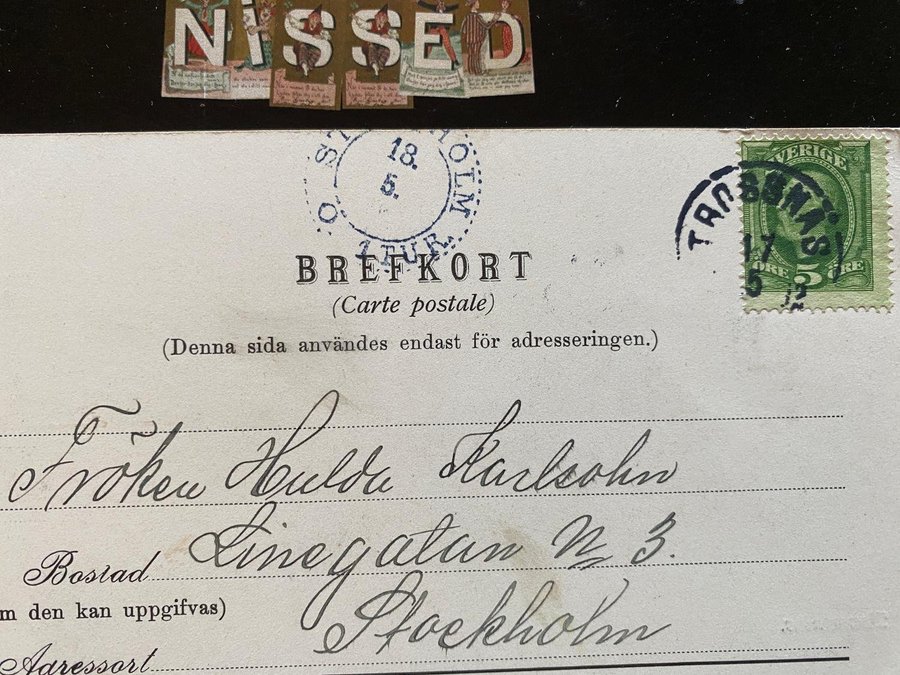 NiSSED
STOCKHOLM
18.
5.
1 TUR.
TROSSNÄS
17
5
SVERIGE
ÖRE 5 ÖRE
BREFKORT
(Carte postale)
(Denna sida användes endast för adresseringen.)
Fröken Hulda Karlsohn
Bostad Linegatan No 3.
m den kan uppgifvas)
Stockholm
Adressort